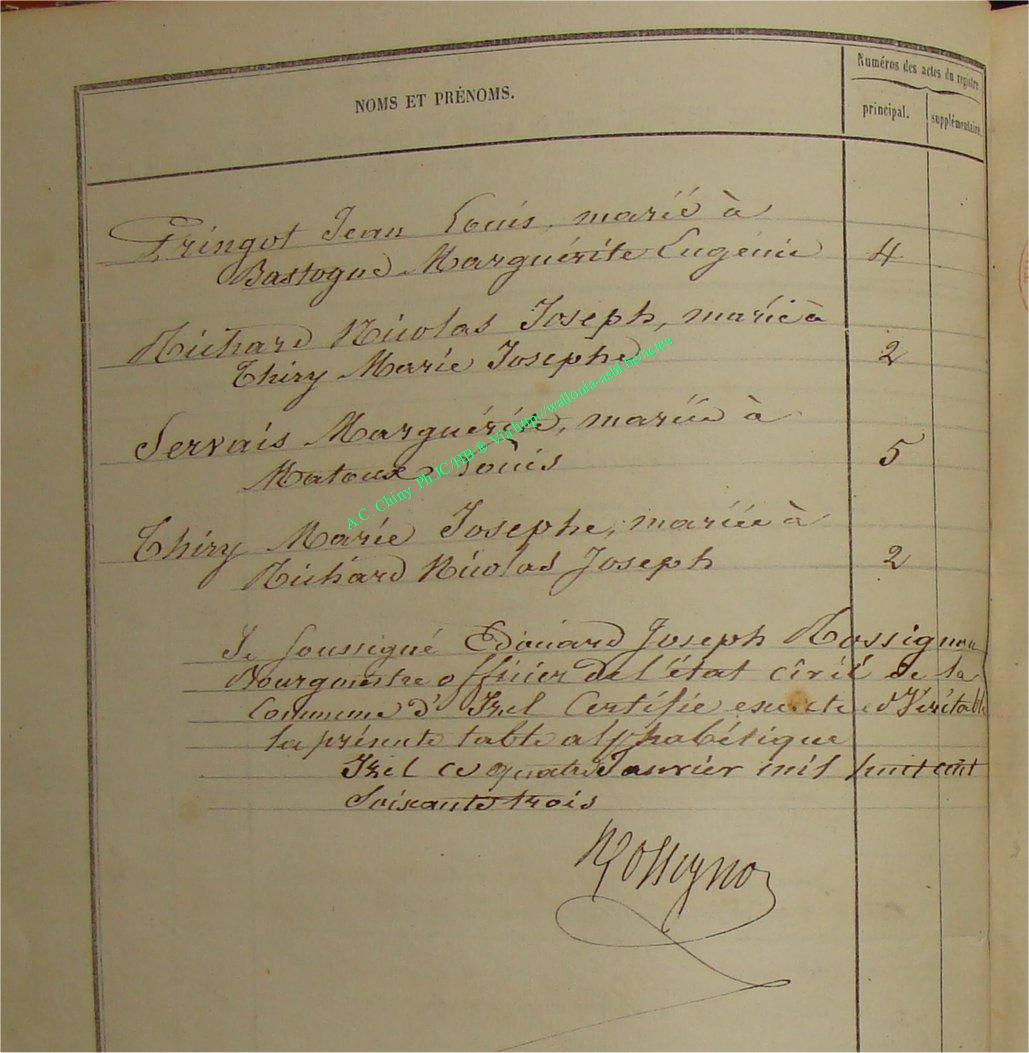 NOMS ET PRÉNOMS.
Numéros des actes du registre
principal.
supplémentaire.
Fringot Jean Louis, marié à
Bastogne Marguérite Eugénie 4
Richard Nicolas Joseph, marié à
Thiry Marie Josephe 2
Servais Marguérite, mariée à
Matoux Louis 5
Thiry Marie Josephe, mariée à
Richard Nicolas Joseph 2
Je soussigné Edouard Joseph Rossignon
Bourgmestre officier de l'état civil de la
Commune d'Izel Certifie exacte et Véritable
la présente table alphabétique
Izel ce quatre Janvier mil huit cent
Soixante trois
Rossignon
A.C. Chiny Ph.JC/HB © Via http://wallonia-asbl.be/actes